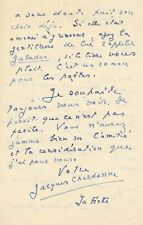 a sans doute fait son
choix déjà. Si elle était
amenée à y renoncer, ayez la
gentillesse de lui rappeler
si le livre vous
plait. C'est un roman
pour les poètes.
Je souhaite
toujours vous voir. Je
parait que ce n'est pas
facile. Vous n'aurez
jamais bien su l'amitié
et la considération que
j'ai pour vous.
Votre
Jacques Chardonne
La Frette